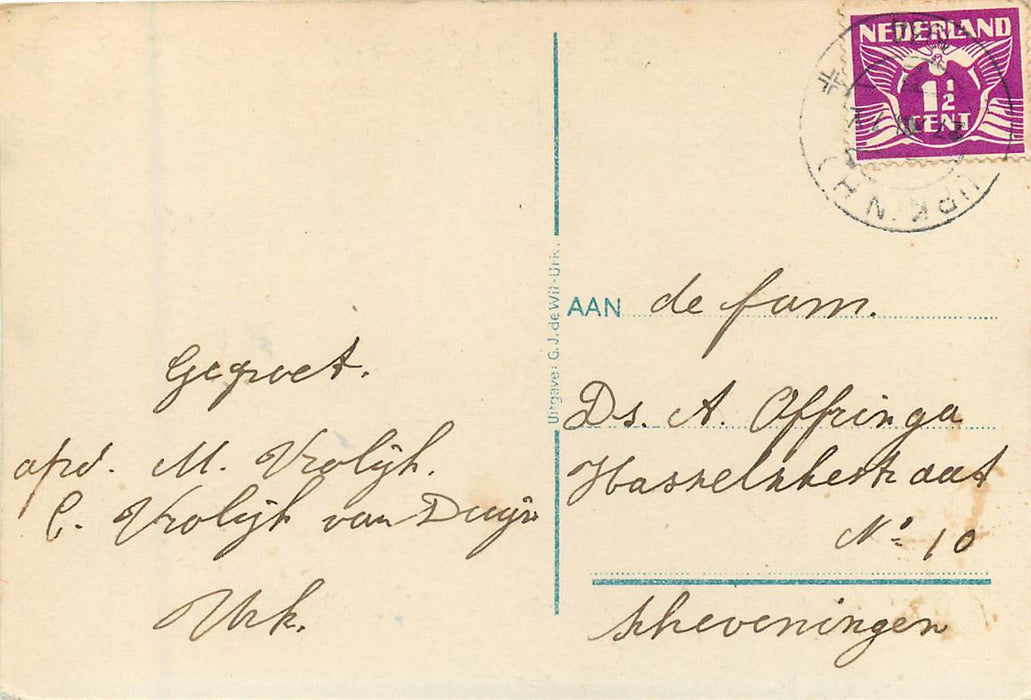 NEDERLAND
1½
CENT
URK (NH)
Uitgave: G.J. de Wit-Urk.
AAN de fam.
Ds. A. Offringa
Hasselschestraat
No 10
Scheveningen
Gegroet.
afzd. M. Vrolijk.
C. Vrolijk van Duijn
Urk.